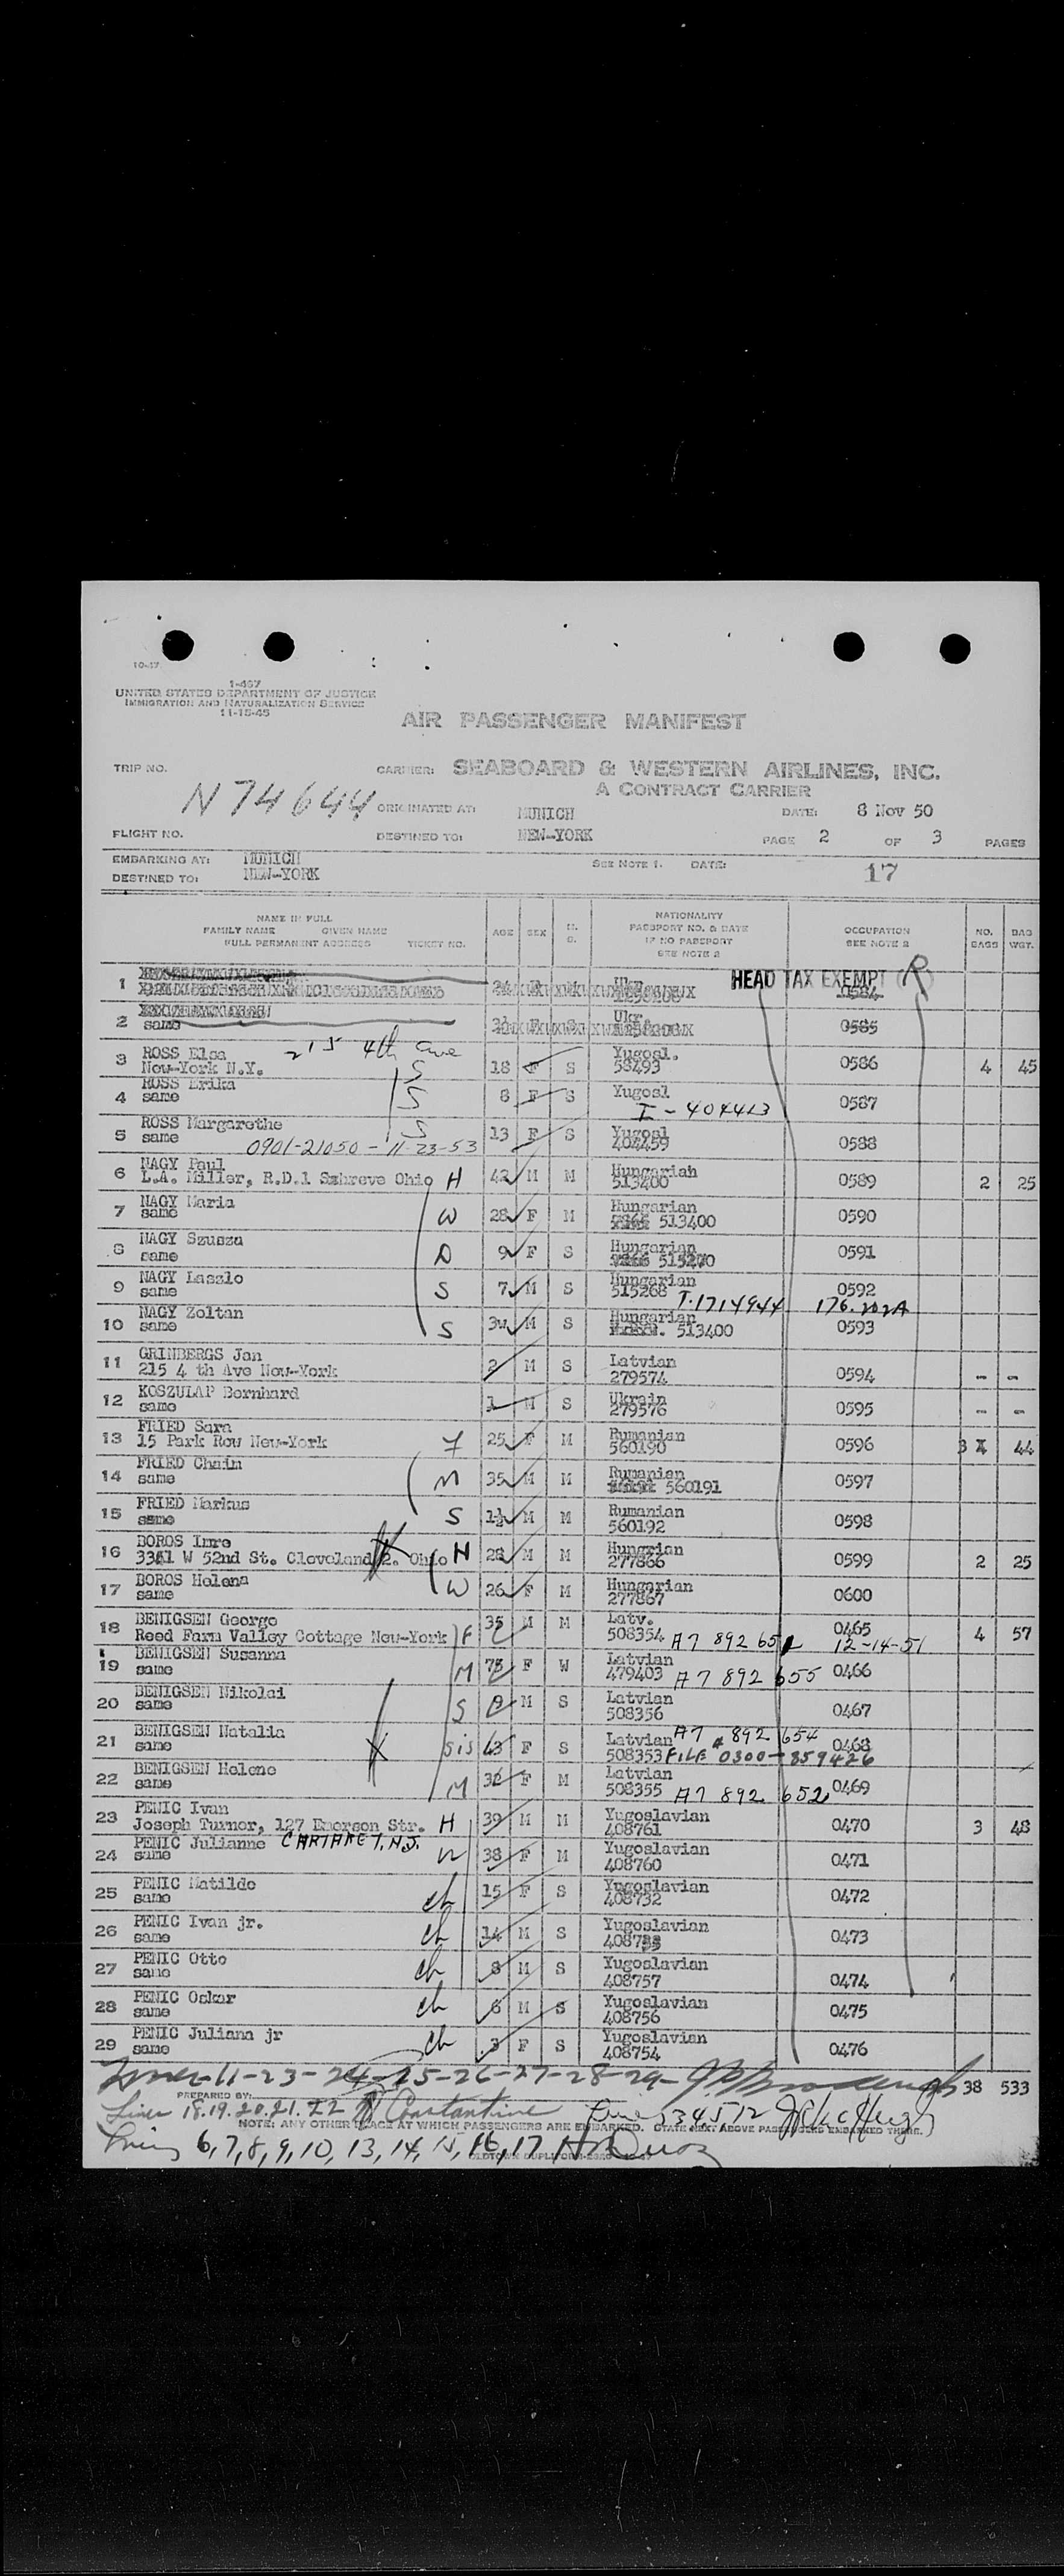 10-47
1-467
UNITED STATES DEPARTMENT OF JUSTICE
IMMIGRATION AND NATURALIZATION SERVICE
11-15-45
AIR PASSENGER MANIFEST
TRIP NO. CARRIER: SEABOARD & WESTERN AIRLINES, INC.
A CONTRACT CARRIER
N74644
ORIGINATED AT: MUNICH DATE: 8 Nov 50
FLIGHT NO. DESTINED TO: NEW-YORK PAGE 2 OF 3 PAGES
EMBARKING AT: MUNICH SEE NOTE 1. DATE: 17
DESTINED TO: NEW-YORK
NAME IN FULL
FAMILY NAME GIVEN NAME
FULL PERMANENT ADDRESS TICKET NO.
AGE SEX M. S.
NATIONALITY
PASSPORT NO. & DATE
IF NO PASSPORT
SEE NOTE 2
OCCUPATION
SEE NOTE 2
NO. BAGS BAG WGT.
HEAD TAX EXEMPT R
1 Ukr. 0584
2 same Ukr. 0585
3 ROSS Elsa 215 4th Ave 18 F S Yugosl. 0586 4 45
New-York N.Y. S 58493
4 ROSS Erika 8 F S Yugosl 0587
same S I-404413
5 ROSS Margarethe S 13 F S Yugosl 0588
same 404459
0901-21050-11-23-53
6 NAGY Paul 42 M M Hungarian 0589 2 25
L.A. Miller, R.D.1 Sshreve Ohio H 513400
7 NAGY Maria W 28 F M Hungarian 0590
same 513400
8 NAGY Szusza D 9 F S Hungarian 0591
same 515270
9 NAGY Laszlo S 7 M S Hungarian 0592
same 515268 T.1714944 176.202A
10 NAGY Zoltan S 3w M S Hungarian 0593
same 513400
11 GRINBERGS Jan 2 M S Latvian 0594 - -
215 4 th Ave New-York 279574
12 KOSZULAP Bernhard 1 M S Ukrain 0595 - -
same 279576
13 FRIED Sara 25 F M Rumanian 0596 3 44
15 Park Row New-York F 560190
14 FRIED Chaim M 35 M M Rumanien 0597
same 560191
15 FRIED Markus S 1½ M M Rumanian 0598
same 560192
16 BOROS Imre 28 M M Hungrian 0599 2 25
3341 W 52nd St. Cleveland 2. Ohio H 277866
17 BOROS Helena W 26 F M Hungarian 0600
same 277867
18 BENIGSEN George 35 M M Latv. 0465 4 57
Reed Farm Valley Cottage New-York F 508354 A7 892 65 12-14-51
19 BENIGSEN Susanna M 73 F W Latvian 0466
same 479403 A7 892 655
20 BENIGSEN Nikolai S M S Latvian 0467
same 508356
21 BENIGSEN Natalia sis 43 F S Latvian A7 892 654 0468
same 508353 FILE 0300-859426
22 BENIGSEN Helene M 32 F M Latvian 0469
same 508355 A7 892 652
23 PENIC Ivan 39 M M Yugoslavian 0470 3 48
Joseph Turner, 127 Emerson Str. H 408761
24 PENIC Julianne CARTARET, N.J. W 38 F M Yugoslavian 0471
same 408760
25 PENIC Matilde ch 15 F S Yugoslavian 0472
same 408732
26 PENIC Ivan jr. ch 14 M S Yugoslavian 0473
same 408733
27 PENIC Otto ch 8 M S Yugoslavian 0474
same 408757
28 PENIC Oskar ch 6 M S Yugoslavian 0475
same 408756
29 PENIC Juliana jr ch 3 F S Yugoslavian 0476
same 408754
11-23-24-25-26-27-28-29- 38 533
PREPARED BY:
Lines 18.19.20.21.22 Constantine Lines 3 4 5 12
NOTE: ANY OTHER PLACE AT WHICH PASSENGERS ARE EMBARKED. STATE NEXT ABOVE PASSENGERS EMBARKED THERE.
Lines 6,7,8,9,10,13,14,15,16,17